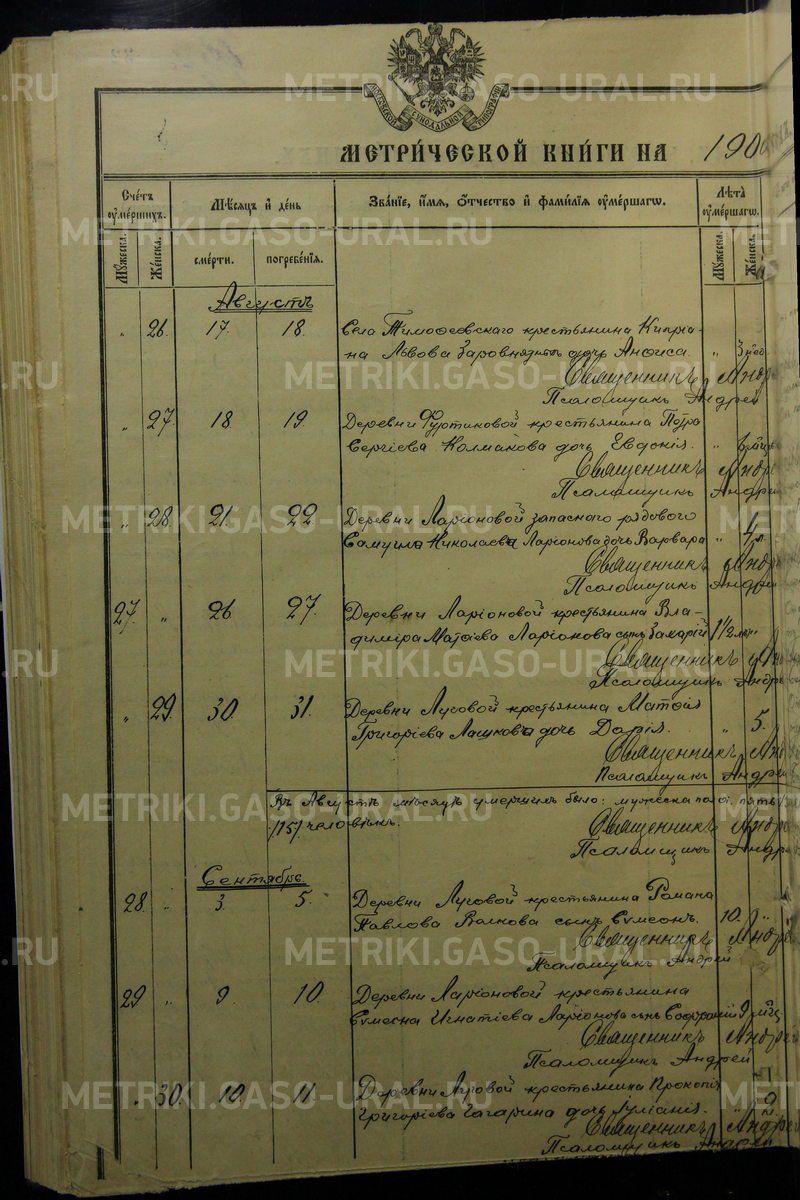 МОСКОВСКОЙ СѴНОДАЛЬНОЙ ТИПОГРАФІИ
МЕТРИ́ЧЕСКОЙ КНИ́ГИ НА 190
Сче́тъ ᲂу҆ме́ршихъ.
Мѣ́сяцъ и҆ де́нь
Зва́нїе, и҆́мѧ, ѻ҆́тчество и҆ фами́лїѧ ᲂу҆ме́ршагѡ.
Лѣ́та ᲂу҆ме́ршагѡ.
Мꙋ́жеска.
Же́нска.
сме́рти.
погребе́нїѧ.
Мꙋ́жеска.
Же́нска.
Августъ
„ 26. 17 18. Село Тимофеевскаго крестьянина Кипріа-
на Львова дочь Анфиса. „
Священникъ Андре
Псаломщикъ Андрей
„ 27 18 19. Деревни крестьянина Петра
Сергіева Колмакова дочь Евдокія. „
Священникъ Андре
Псаломщикъ Андрей
„ 28. 21 22 Деревни Ларіоновой запаснаго рядового
Самуила Николаева Ларіонова дочь Варвара „
Священникъ Андре
Псаломщикъ Андрей
27. „ 26 27. Деревни Ларіоновой крестьянина Вла-
диміра Матѳіева Ларіонова сынъ Захарій 1½
Священникъ Андре
Псаломщикъ Андре
„ 29. 30. 31. Деревни Луговой крестьянина Матѳія
Григоріева Лашкова дочь Дарія. „ 5.
Священникъ Андре
Псаломщикъ Андрей
Въ Августѣ мѣсяцѣ умершихъ было: мужеска пола пять
/15/ человѣкъ.
Священникъ Андре
Псаломщикъ Андре
Сентябрь.
28. „ 3. 5. Деревни Луговой крестьянина Романа
Павлова Волкова сынъ Сумеонъ. 10. „
Священникъ Андре
Псаломщикъ Андрей
29 „ 9. 10. Деревни Ларіоновой крестьянина
Сумеона Игнатіева Ларіонова сынъ Софроній 9
Священникъ Андрей
Псаломщикъ Андрей
„ 30. 10. 11. Деревни Луговой крестьянина Прокопія
Григоріева Гагарина дочь Іуліанія. „ 2.
Священникъ Андрей
Псаломщикъ Андрей
METRIKI.GASO-URAL.RU